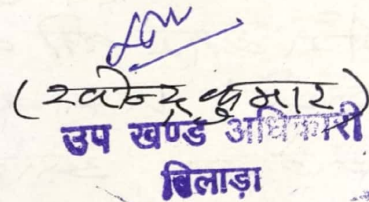 (रवीन्द्र कुमार)
उप खण्ड अधिकारी
बिलाड़ा